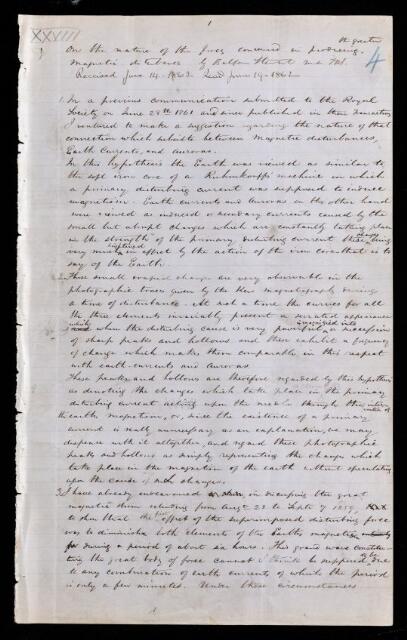 XXVIII
4
On the nature of the forces concerned in producing the greater
Magnetic disturbances by Balfour Stewart M.A. F.R.S.
Received June 14. 1862. Read June 19. 1862
1. In a previous communication submitted to the Royal
Society on June 28th 1861 and since published in their Transactions
I ventured to make a suggestion regarding the nature of that
connection which subsists between Magnetic disturbances,
Earth Currents, and auroras.
In this hypothesis the Earth was viewed as similar to
the soft iron core of a Ruhmkorff's machine in which
a primary disturbing current was supposed to induce
magnetism. Earth currents and auroras on the other hand
were viewed as induced or secondary currents caused by the
small but abrupt changes which are constantly taking place
in the strength of the primary disturbing current these changes being
very much in effect by the action of the iron core that is to
say of the Earth.
2. These small abrupt changes are very observable in the
photographic traces given by the Kew magnetographs during
a time of disturbance. At such a time the curves for all
the three elements invariably present a serrated appearance
while when the disturbing cause is very powerful a succession
of sharp peaks and hollows and these exhibit a frequency
of change which makes them comparable in this respect
with earth currents and auroras.
These peaks and hollows are therefore regarded by this hypothesis
as denoting the changes which take place in the primary
disturbing current acting upon the needle through the
the earth's magnetism, or, since the existence of a primary
current is not necessary as an explanation, we may
dispense with it altogether, and regard these photographic
peaks and hollows as simply representing the changes which
take place in the magnetism of the earth without speculating
upon the cause of such changes.
3. I have already endeavoured in discussing the great
magnetic storm extending from Augt 28 to Septr 7 1859,
to shew that the first effect of the superimposed disturbing force
was to diminish both elements of the Earth's magnetism
during a period of about six hours. This grand wave constitu-
ting the great body of force cannot I think be supposed to be due
to any combination of earth currents of which the period
is only a few minutes. Under these circumstances